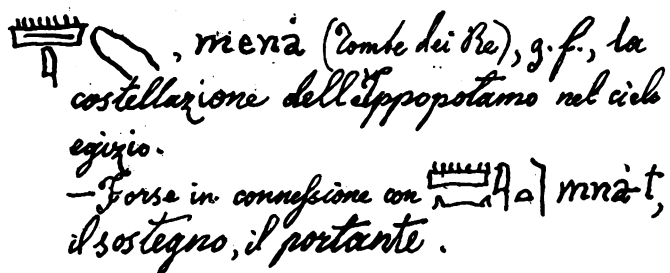 , menȧ (Tombe dei Re), g. f., la
costellazione dell'Ippopotamo nel cielo
egizio.
— Forse in connessione con mnȧ-t,
il sostegno, il portante.